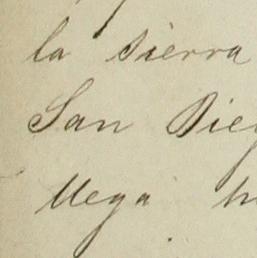 la sierra
San Dieg
llega h